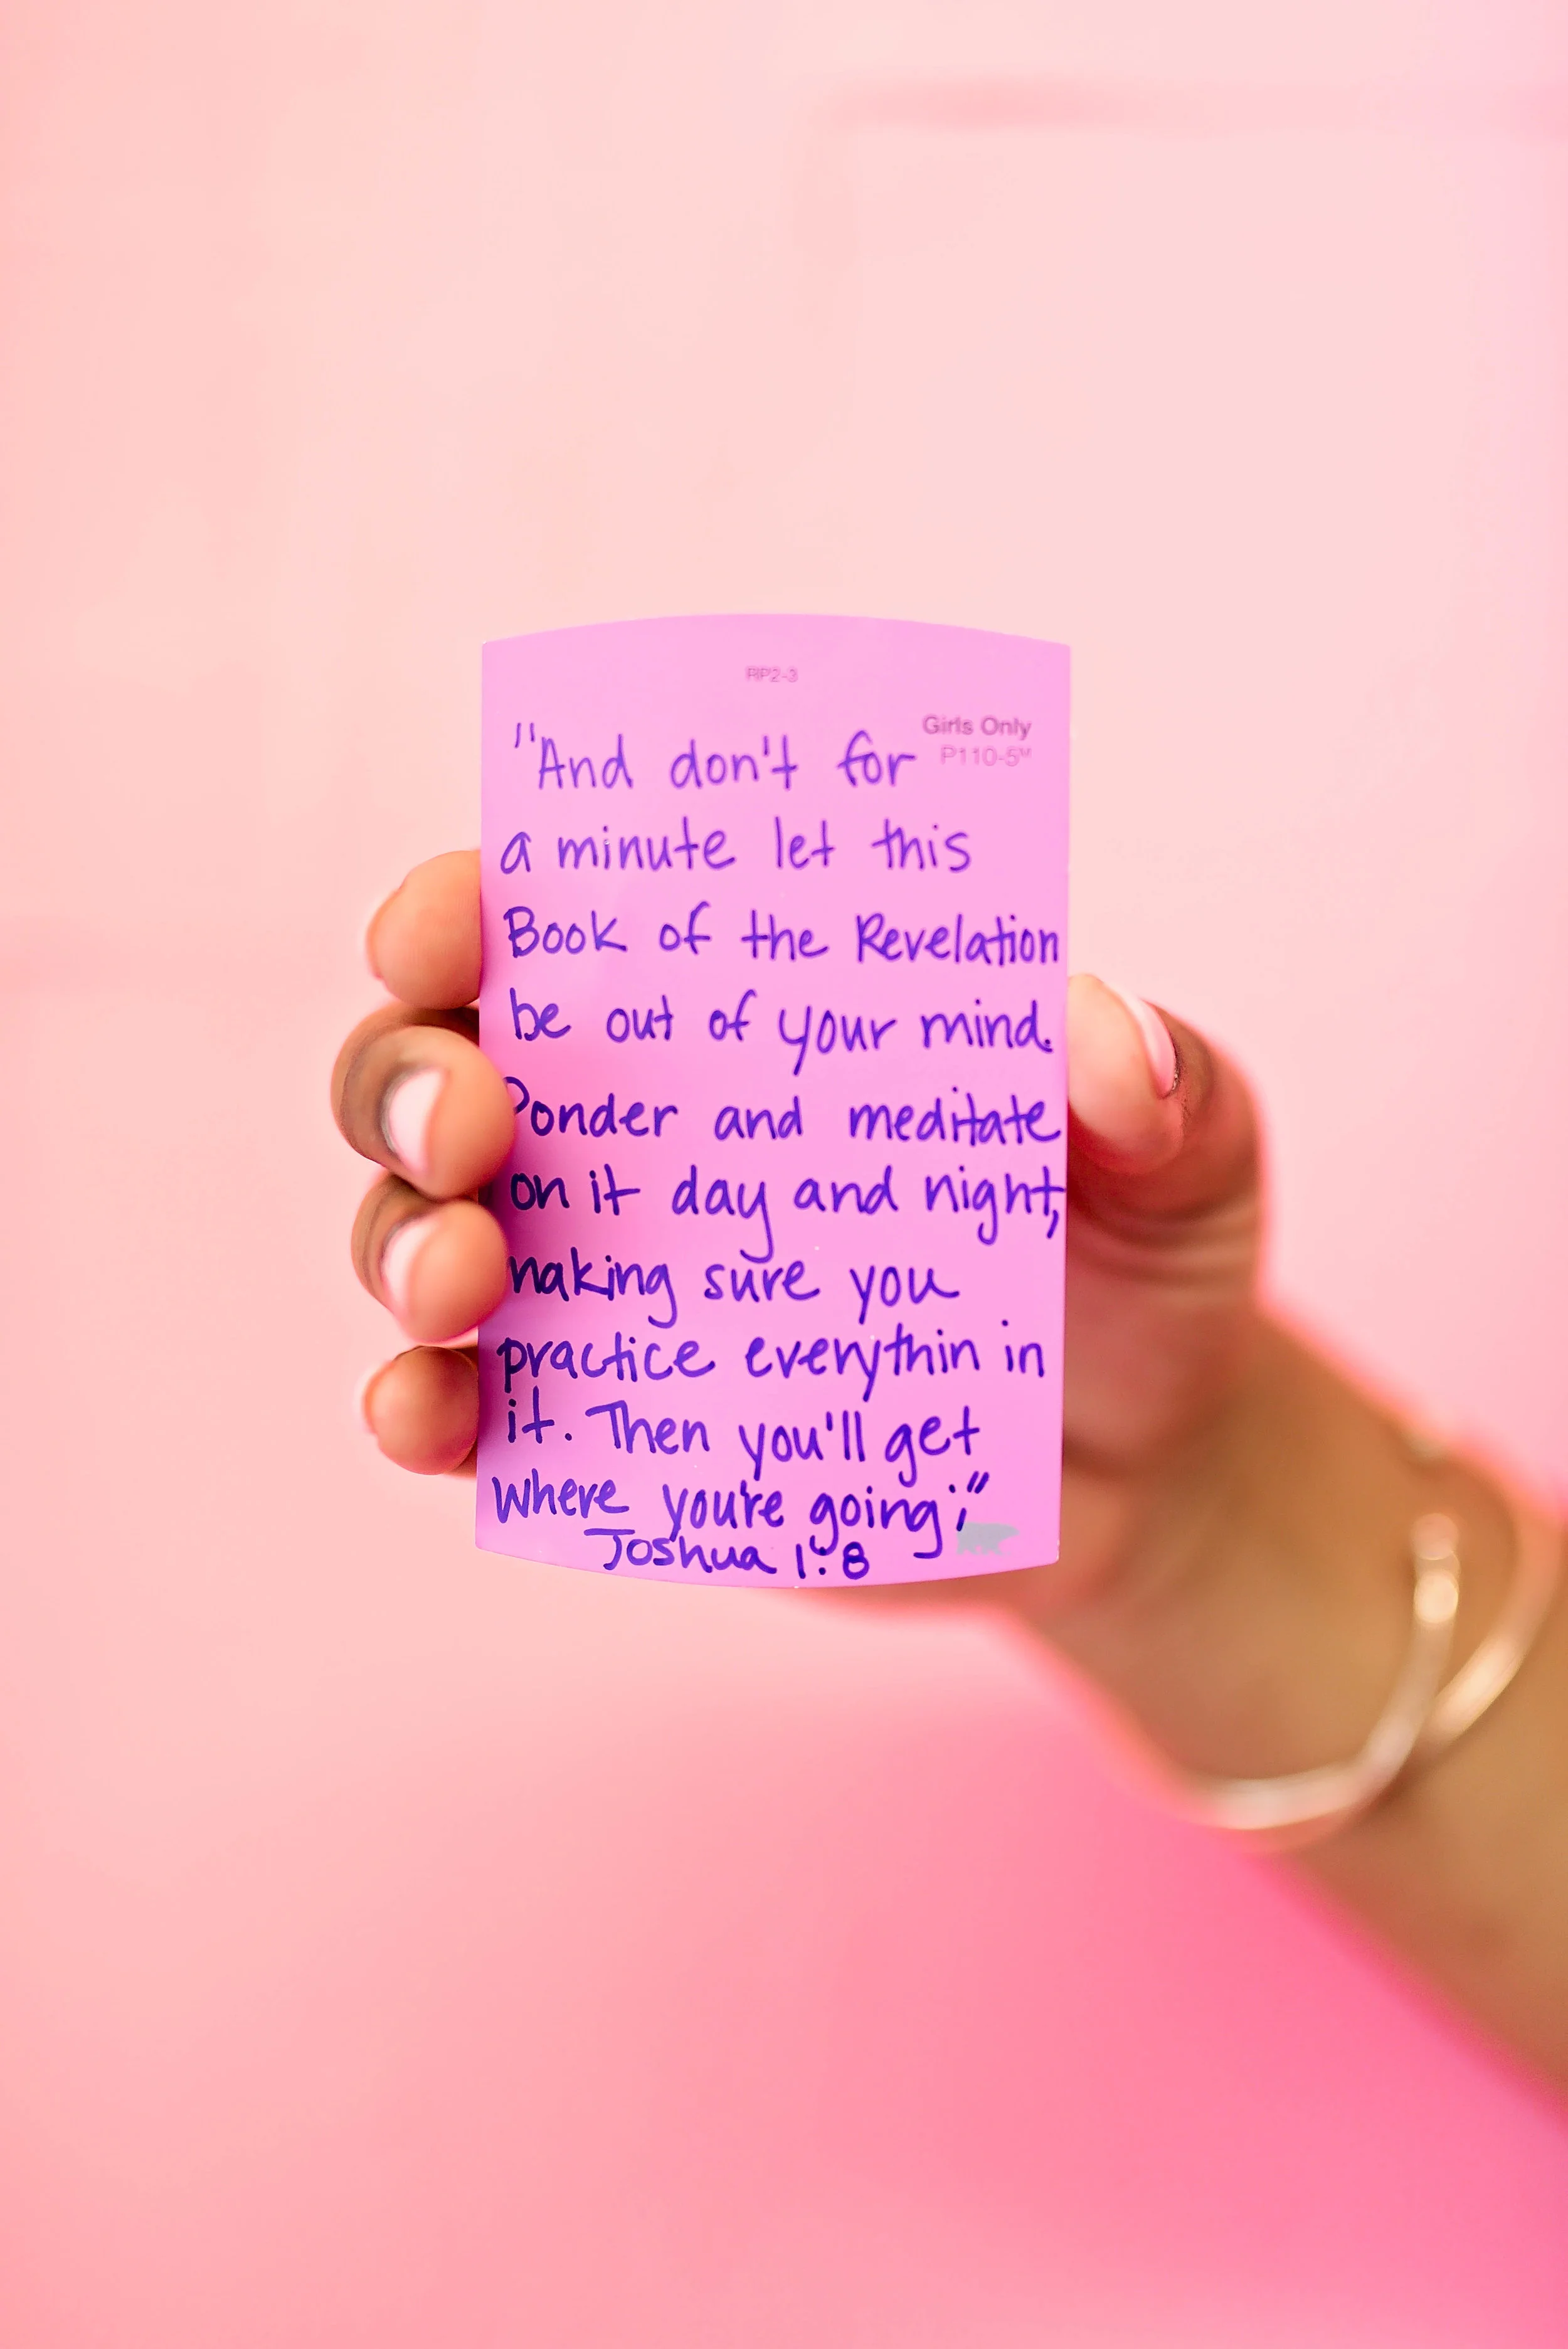 RP2-3
Girls Only
P110-5M
"And don't for
a minute let this
Book of the Revelation
be out of your mind.
Ponder and meditate
on it day and night,
making sure you
practice everythin in
it. Then you'll get
where you're going;"
Joshua 1:8